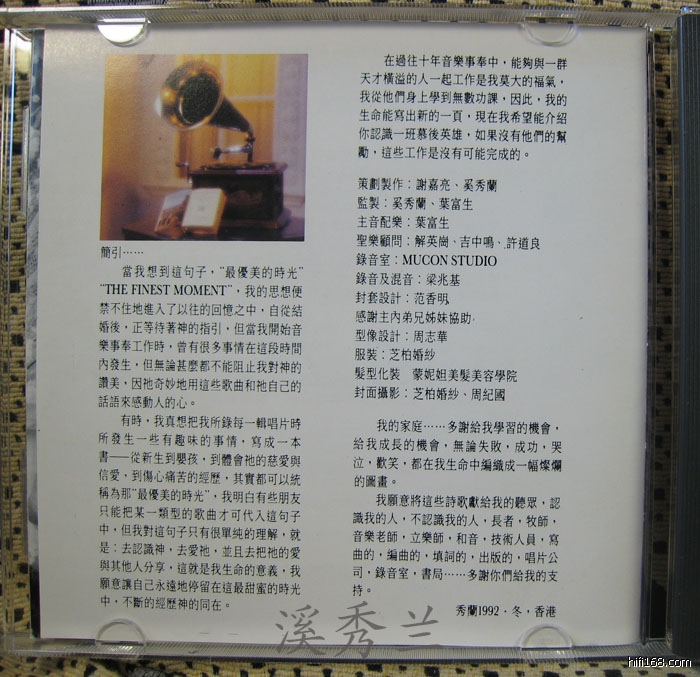 簡引……
當我想到這句子，"最優美的時光"
"THE FINEST MOMENT"，我的思想便
禁不住地進入了以往的回憶之中，自從結
婚後，正等待著神的指引，但當我開始音
樂事奉工作時，曾有很多事情在這段時間
內發生，但無論甚麼都不能阻止我對神的
讚美，因祂奇妙地用這些歌曲和祂自己的
話語來感動人的心。
有時，我真想把我所錄每一輯唱片時
所發生一些有趣味的事情，寫成一本
書──從新生到嬰孩，到體會祂的慈愛與
信愛，到傷心痛苦的經歷，其實都可以統
稱為那"最優美的時光"，我明白有些朋友
只能把某一類型的歌曲才可代入這句子
中，但我對這句子只有很單純的理解，就
是：去認識神，去愛祂，並且去把祂的愛
與其他人分享，這就是我生命的意義，我
願意讓自己永遠地停留在這最甜蜜的時光
中，不斷的經歷神的同在。
在過往十年音樂事奉中，能夠與一群
天才橫溢的人一起工作是我莫大的福氣，
我從他們身上學到無數功課，因此，我的
生命能寫出新的一頁，現在我希望能介紹
你認識一班幕後英雄，如果沒有他們的幫
勵，這些工作是沒有可能完成的。
策劃製作：謝嘉亮、奚秀蘭
監製：奚秀蘭、葉富生
主音配樂：葉富生
聖樂顧問：解英崗、吉中鳴、許道良
錄音室：MUCON STUDIO
錄音及混音：梁兆基
封套設計：范香明
感謝主內弟兄姊妹協助
型像設計：周志華
服裝：芝柏婚紗
髮型化裝　蒙妮妲美髮美容學院
封面攝影：芝柏婚紗、周紀國
我的家庭……多謝給我學習的機會，
給我成長的機會，無論失敗，成功，哭
泣，歡笑，都在我生命中編織成一幅燦爛
的圖畫。
我願意將這些詩歌獻給我的聽眾，認
識我的人，不認識我的人，長者，牧師，
音樂老師，立樂師，和音，技術人員，寫
曲的，編曲的，填詞的，出版的，唱片公
司，錄音室，書局……多謝你們給我的支
持。
秀蘭1992．冬，香港
溪秀兰
hifi168.com